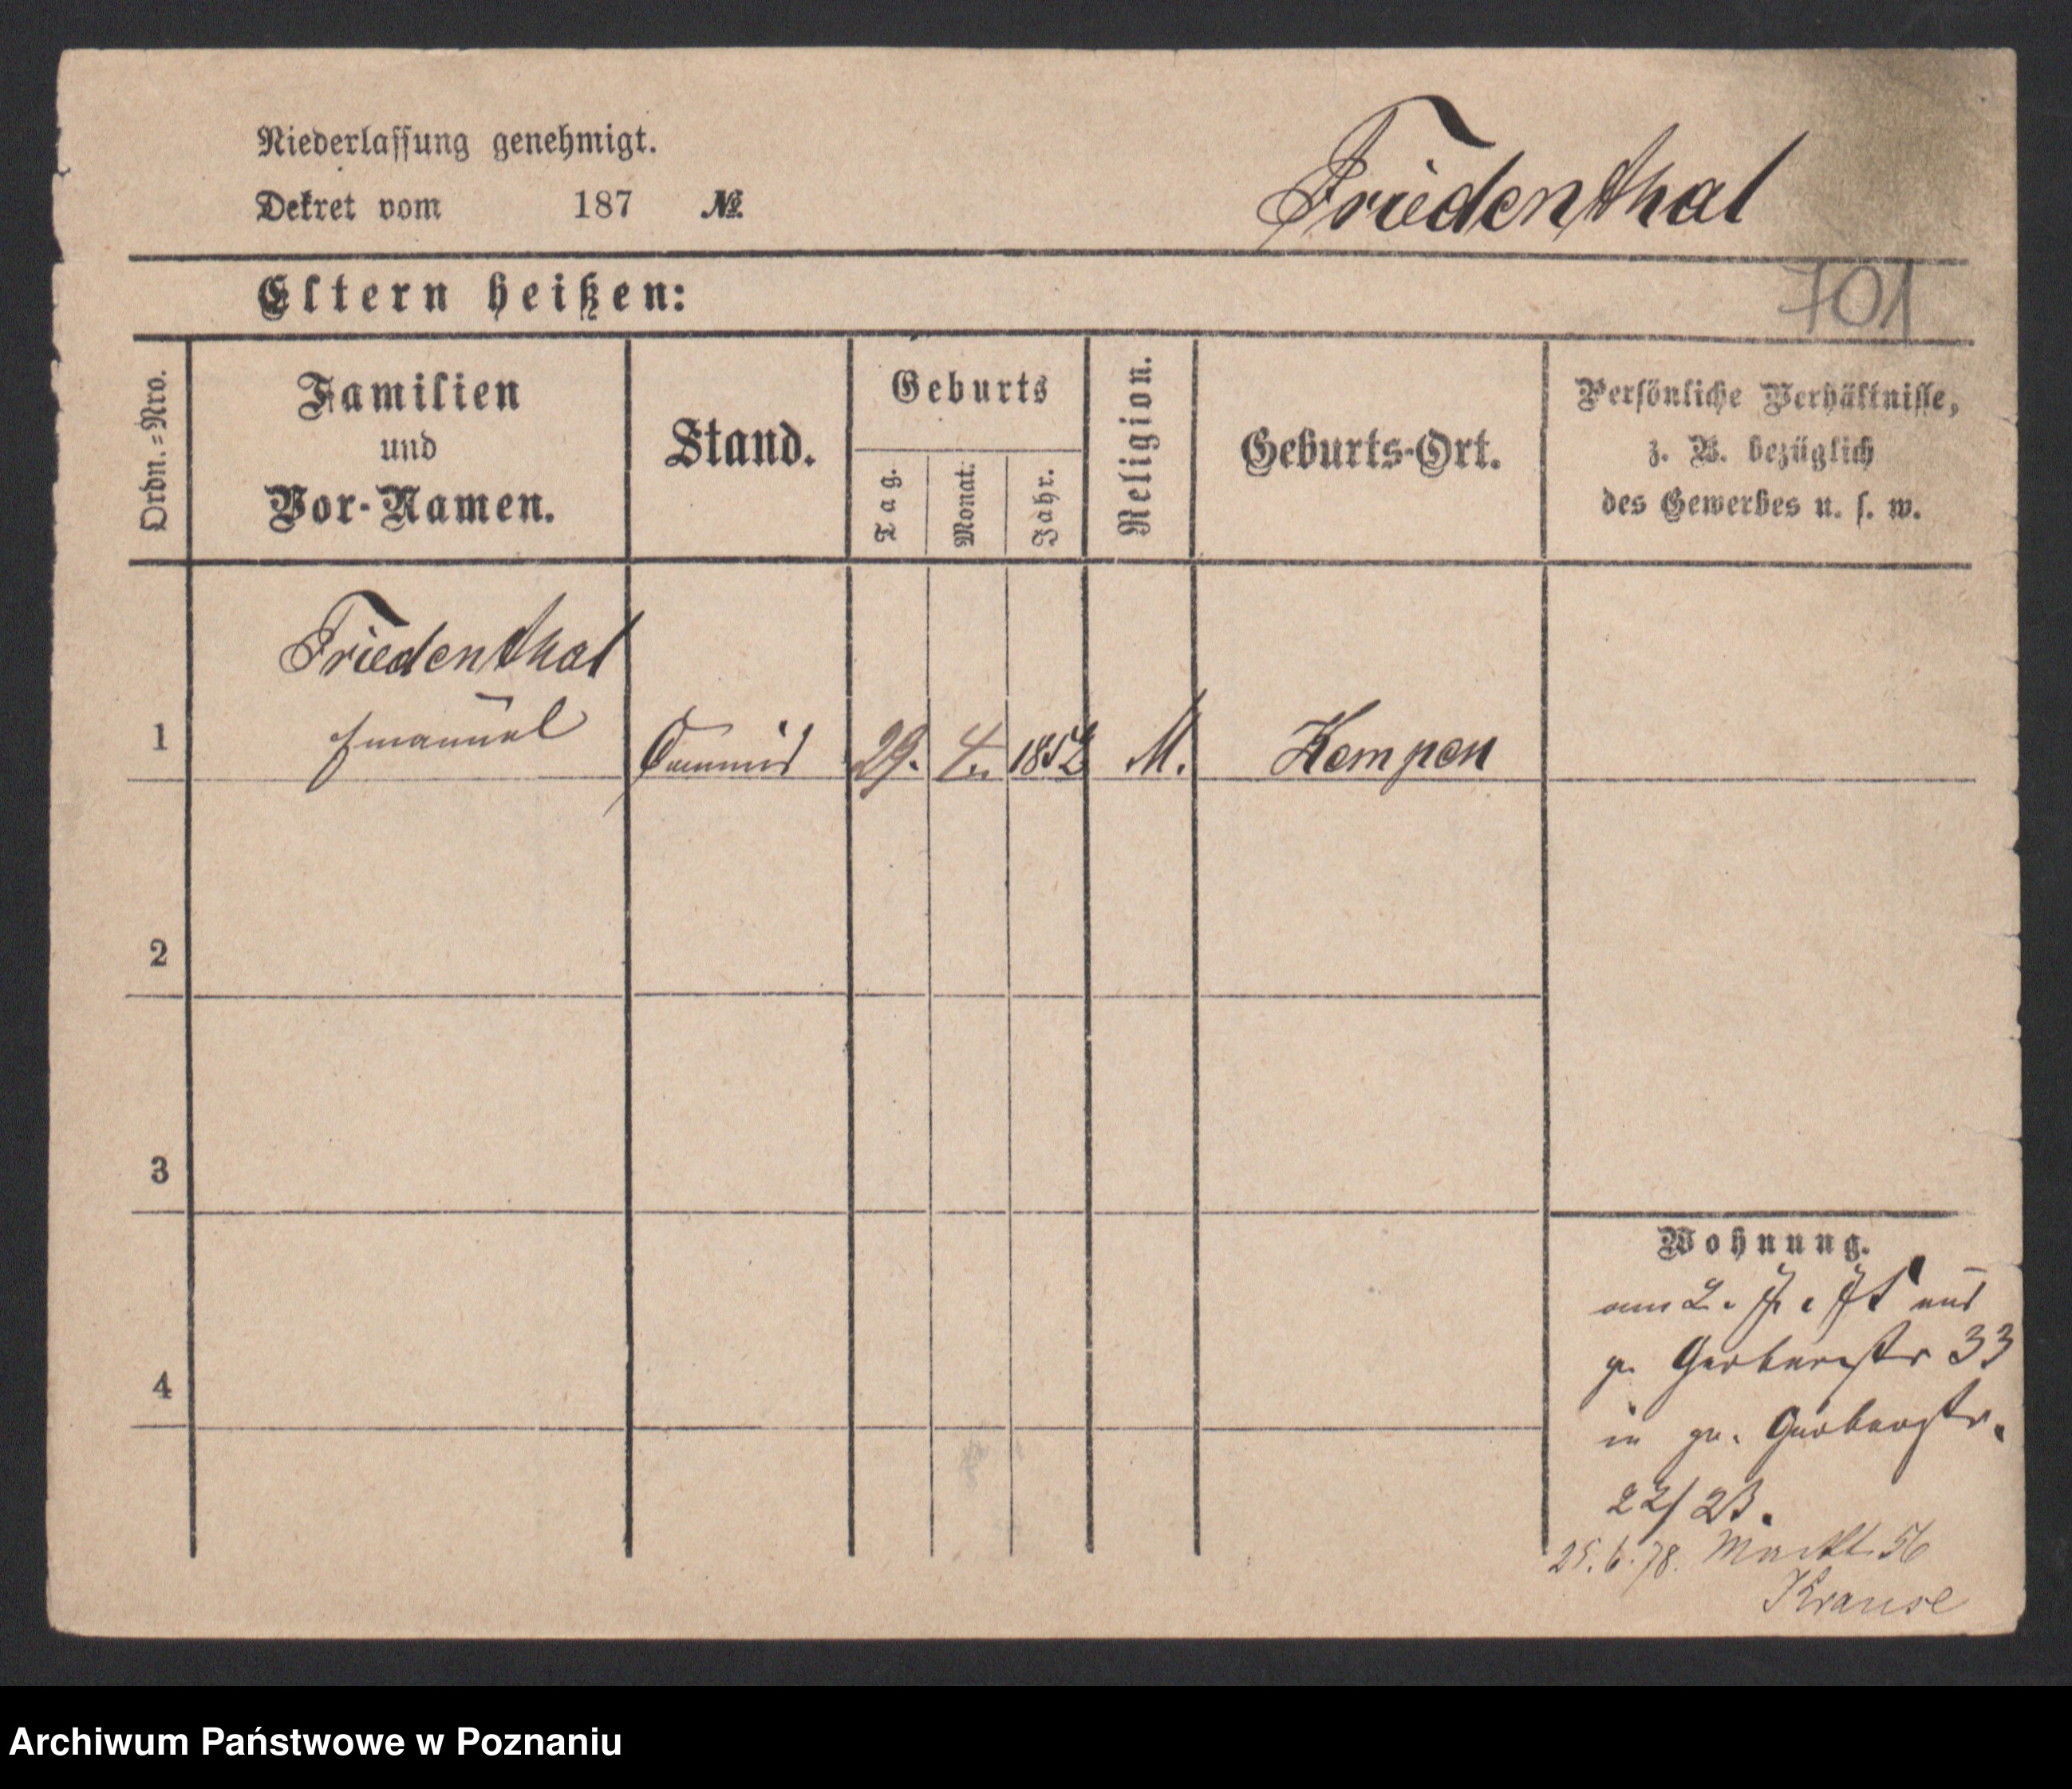 Niederlassung genehmigt.
Dekret vom 187 №
Friedenthal
Eltern heißen:
701
Ordn.=Nro.
Familien
und
Vor-Namen.
Stand.
Geburts
Tag.
Monat.
Jahr.
Religion.
Geburts-Ort.
Persönliche Verhältnisse,
z. B. bezüglich
des Gewerbes u. s. w.
Friedenthal
1 Emanuel Commis 29. 4. 1852 M. Kempen
2
3
4
Wohnung.
am 2. aus
gr. Gerberstr 33
in gr. Gerberstr.
22/23.
25.6.78. Markt 56
Krause
Archiwum Państwowe w Poznaniu